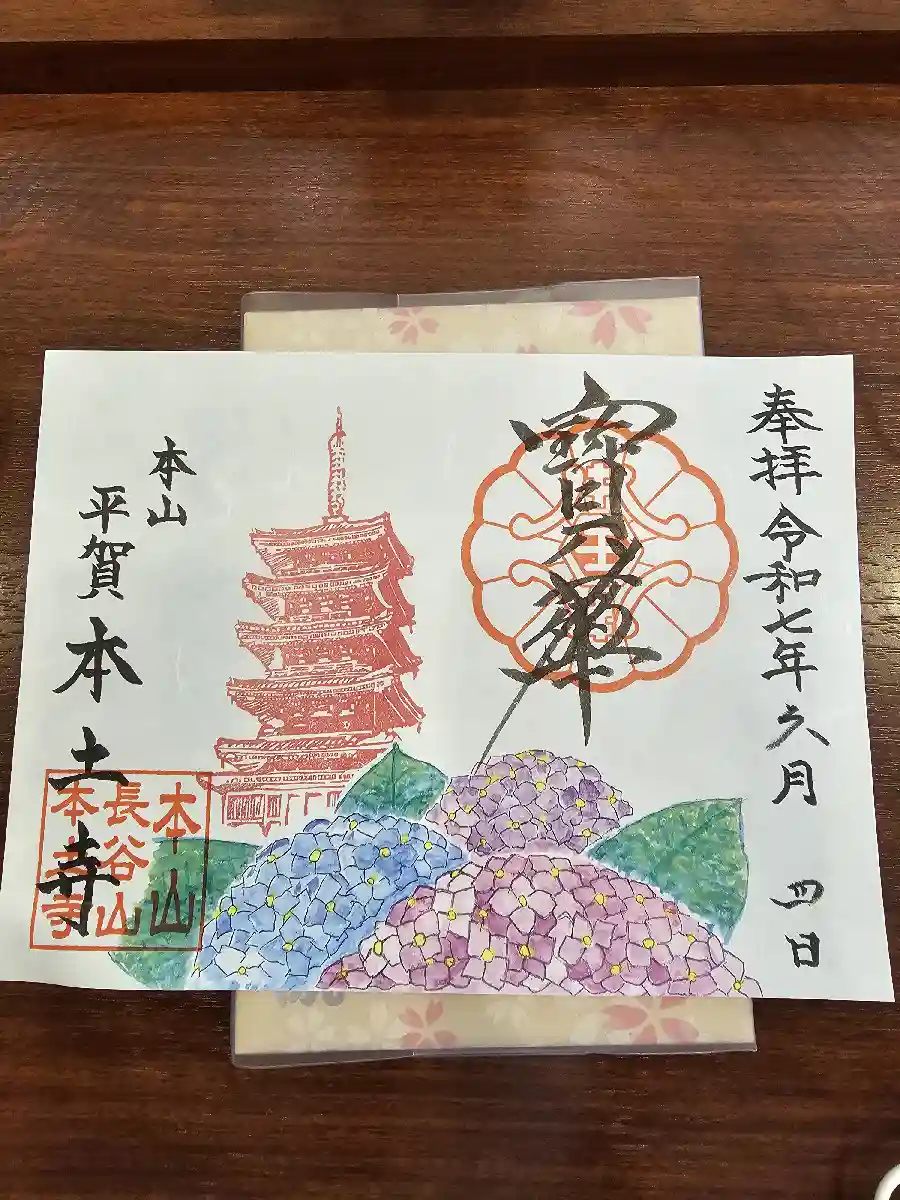 奉拝 令和七年六月 四日
本山
平賀 本土寺
本山
長谷山
本土寺